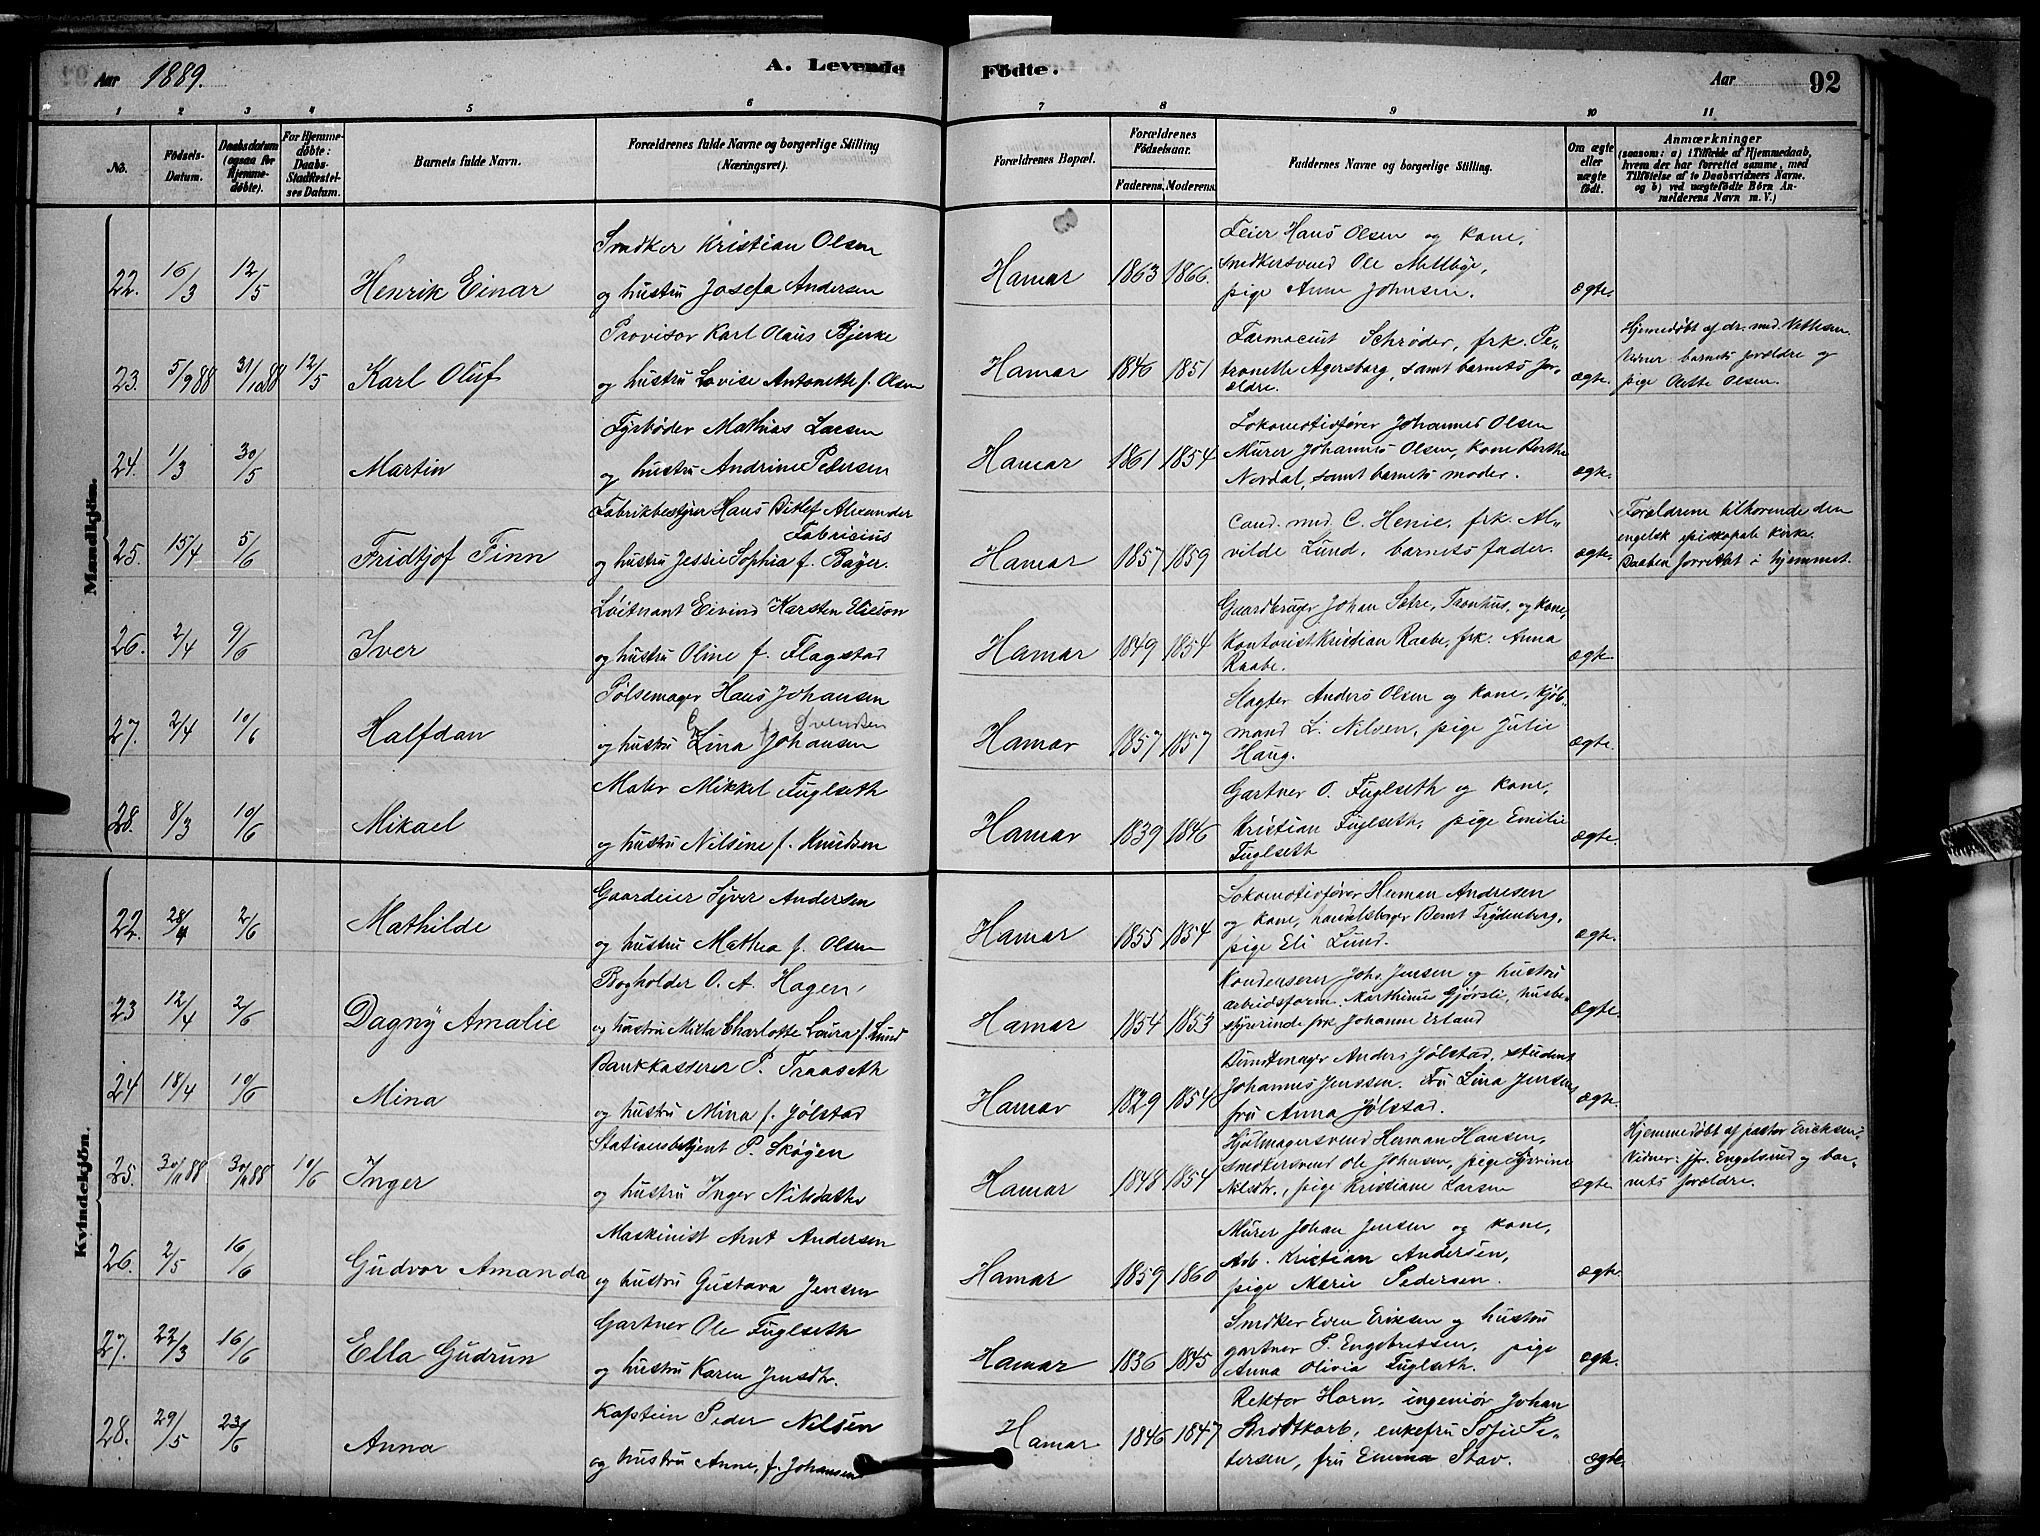 Aar 1889.
A. Levende Födte.
Aar 92
1 2 3 4 5 6 7 8 9 10 11
No.
Födsels-Datum.
Daabsdatum (ogsaa for Hjemmedöbte).
For Hjemmedöbte: Daabs-Stadfæstelses Datum.
Barnets fulde Navn.
Forældrenes fulde Navne og borgerlige Stilling (Næringsvei).
Forældrenes Bopæl.
Forældrenes Födselsaar.
Faderens. Moderens.
Faddernes Navne og borgerlige Stilling.
Om ægte eller uægte født.
Anmærkninger
(saasom: a) i Tilfælde af Hjemmedaab,
hvem der har forrettet samme, med
Tilföielse af to Daabsvidners Navne.
og b) ved uægtefödte Börn An-
melderens Navn m. V.)
Mandkjön.
22. 16/3 12/5 Henrik Einar
Snedker Kristian Olsen
og hustru Josefa Andersen
Hamar 1863 1866.
Feier Hans Olsen og kone,
snedkersvend Ole Mellbye,
pige Anne Johnsen.
ægte.
23. 5/9 88 31/10 88 12/5 Karl Oluf
Provisor Karl Olaus Bjerke
og hustru Lovise Antonette f. Olsen
Hamar 1846 1851
Farmaceut Schrøder, frk. Pe-
tronelle Agersborg, samt barnets for-
ældre.
ægte.
Hjemedøbt af dr. med. Vettesen
Vidner barnets forældre og
pige Dette Olsen.
24. 1/3 30/5 Martin
Fyrbøder Mathias Larsen
og hustru Andrine Pedersen
Hamar 1861 1854
Lokomotivfører Johannes Olsen
Murer Johannes Olsen, kone Berthe
Nordal, samt barnets moder.
ægte.
25. 15/4 5/6 Fridtjof Finn
Fabrikbestyrer Hans Ditlef Alexander
Fabricius
og hustru Jessie Sophia f. Bayer.
Hamar 1857 1859
Cand. med. C. Henie, frk. Al-
vilde Lund, barnets fader.
ægte.
Forældrene tilhørende den
engelsk episkopale kirke.
Daaben forrettet i hjemmet.
26. 2/4 9/6 Iver
Løitnant Eivind Karsten Elieson
og hustru Oline f. Flagstad
Hamar 1849 1854
Gaardbruger Johan Sætre, Tronhus, og kone,
Kontorist Kristian Raabe, frk. Anna
Raabe.
ægte
27. 2/4 10/6 Halfdan
Pølsemager Hans Johansen
Svendsen
og hustru Lina Johansen
Hamar 1857 1857
Slagter Anders Olsen og kone, kjøb-
mand L. Nilsen, pige Julie
Haug.
ægte.
28. 8/3 10/6 Mikael
Maler Mikkel Fuglseth
og hustru Nilsine f. Knudsen
Hamar 1839 1846
Gartner O. Fuglseth og kone,
Kristian Fuglseth, pige Emilie
Fuglseth
ægte.
Kvindekjön.
22. 28/4 2/6 Mathilde
Gaardeier Syver Andersen
og hustru Mathea f. Olsen
Hamar 1855 1854
Lokomotivfører Herman Andresen
og kone, handelsborger Bernt Frydenberg,
pige Eli Lund.
ægte.
23 12/4 2/6 Dagny Amalie
Bogholder O. A. Hagen,
og hustru Mixla Charlotte Laura f. Lund
Hamar 1854 1853
Kondenserer Johs. Jensen og hustru
arbeidsform. Marthinus Gjørsli, husbe-
styrerinde frk. Johanne Erland
ægte.
24 18/4 10/6 Mina
Bankkasserer P. Traaseth
og hustru Mina f. Jølstad
Hamar 1829 1854
Buntmager Anders Jølstad, student
Johannes Jenssen. Fru Lina Jensen,
fru Anna Jølstad.
ægte.
25. 30/11 88 30/11 88 10/6 Inger
Stationsbetjent P. Skøyen
og hustru Inger Nilsdatter
Hamar 1848 1854
Hjulmagersvend Herman Hansen,
Snedkersvend Ole Johnsen, pige Syverine
Nilsdtr., pige Kristiane Larsen
ægte
Hjemmedøbt af pastor Ericksen.
Vidner: jfr. Engelsrud og bar-
nets forældre.
26. 2/5 16/6 Gudvor Amanda
Maskinist Arnt Andersen
og hustru Gustava Jensen
Hamar 1859 1860
Murer Johan Jensen og kone,
Arb. Kristian Andersen,
pige Marie Pedersen.
ægte.
27. 22/3 16/6 Ella Gudrun
Gartner Ole Fuglseth
og hustru Karen Jensdtr.
Hamar 1836 1845
Snedker Even Eriksen og hustru
gartner P. Engebretsen, pige
Anna Olivia Fuglseth.
ægte.
28. 29/5 23/6 Anna
Kaptein Peder Nilsen
og hustru Anne, f. Johansen
Hamar 1846 1847
Rektor Horn, ingeniør Johan
Brodtkorb, enkefru Sofie Pe-
tersen, fru Emma Stav.
ægte